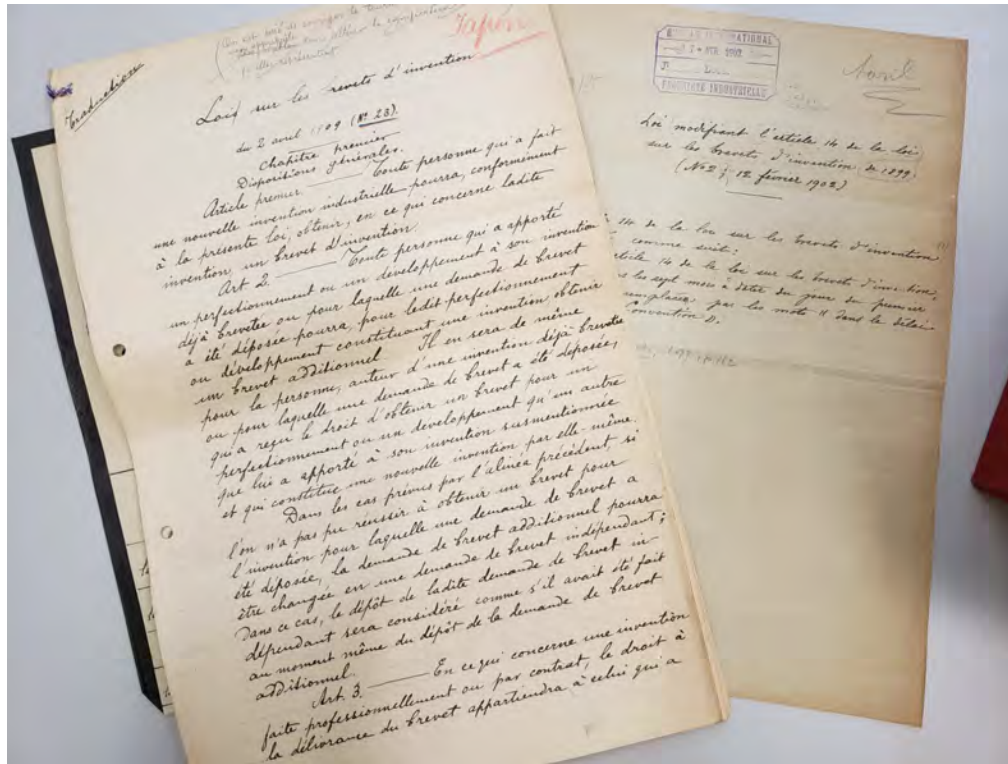 Traduction
Japon
Loi sur les brevets d'invention
du 2 avril 1909 (Nº 23).
Chapitre premier
Dispositions générales.
Article premier. ——— Toute personne qui a fait
une nouvelle invention industrielle pourra, conformément
à la présente loi, obtenir, en ce qui concerne ladite
invention, un brevet d'invention.
Art 2. ——— Toute personne qui a apporté
un perfectionnement ou un développement à son invention
déjà brevetée ou pour laquelle une demande de brevet
a été déposée pourra, pour ledit perfectionnement
ou développement constituant une invention, obtenir
un brevet additionnel. Il en sera de même
pour la personne, auteur d'une invention déjà brevetée
ou pour laquelle une demande de brevet a été déposée,
qui a reçu le droit d'obtenir un brevet pour un
perfectionnement ou un développement qu'un autre
que lui a apporté à son invention susmentionnée
et qui constitue une nouvelle invention par elle-même.
Dans les cas prévus par l'alinéa précédent, si
l'on n'a pas pu réussir à obtenir un brevet pour
l'invention pour laquelle une demande de brevet a
été déposée, la demande de brevet additionnel pourra
être changée en une demande de brevet indépendant;
dans ce cas, le dépôt de ladite demande de brevet in-
dépendant sera considéré comme s'il avait été fait
au moment même du dépôt de la demande de brevet
additionnel.
Art. 3. ——— En ce qui concerne une invention
faite professionnellement ou par contrat, le droit à
la délivrance du brevet appartiendra à celui qui a
INTERNATIONAL
1902
PROPRIÉTÉ INDUSTRIELLE
Loi modifiant l'article 14 de la loi
sur les brevets d'invention de 1899
(Nº 2; 12 février 1902)
14 de la loi sur les brevets d'invention (1)
comme suit:
article 14 de la loi sur les brevets d'invention,
les sept mois à dater du jour du premier
remplacés par les mots « dans le délai
Convention ».